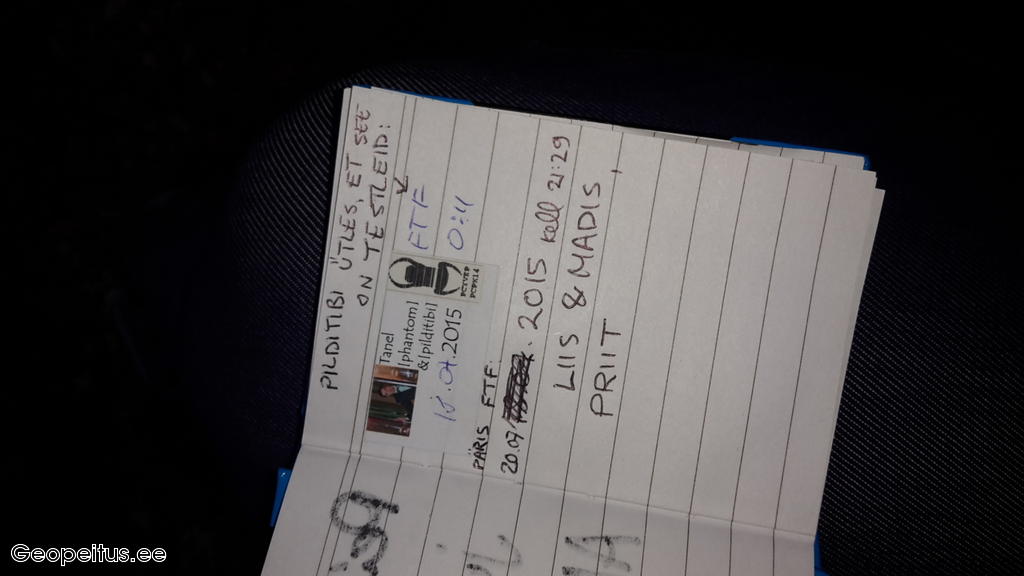 PILDITIBI ÜTLES, ET SEE
ON TESTLEID:
Tanel
|phantom|
&|pilditibi|
FTF
2015
0:11
PÄRIS FTF:
20.07 . 2015 kell 21:29
LIIS & MADIS,
PRIIT
Geopeitus.ee